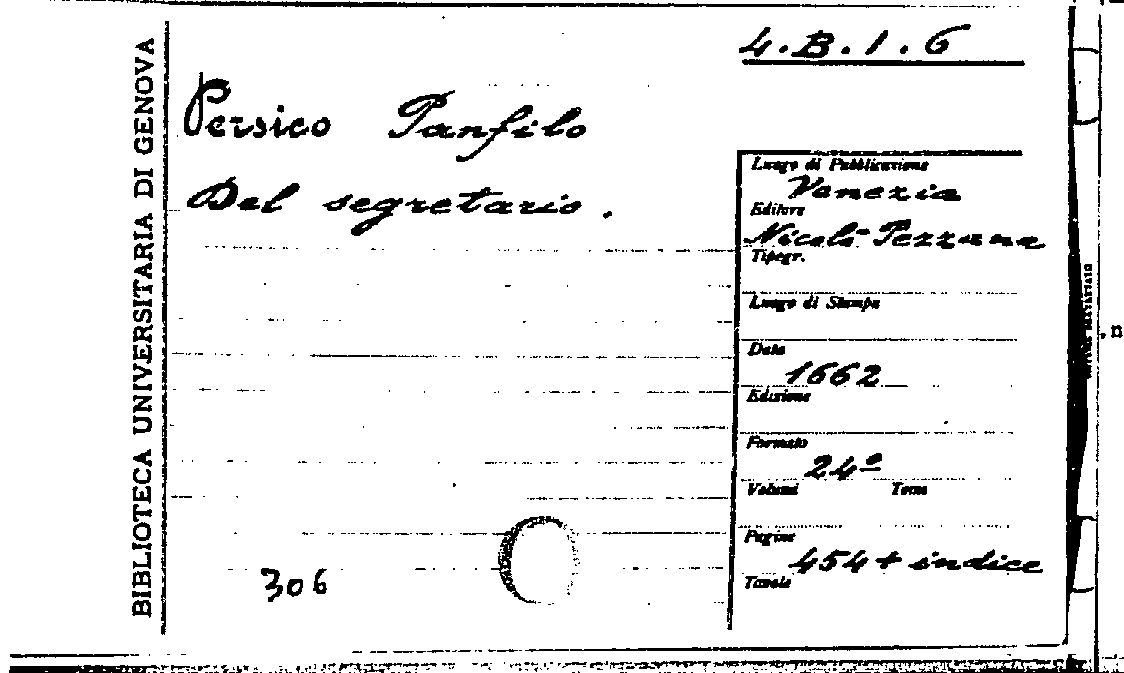 BIBLIOTECA UNIVERSITARIA DI GENOVA
4.B.1.6
Persico Panfilo
Del segretario.
Luogo di Pubblicazione
Venezia
Editore
Nicolò Pezzana
Tipogr.
Luogo di Stampa
Data
1662
Edizione
Formato
24º
Volumi Tomi
Pagine
454 + indice
Tavole
306